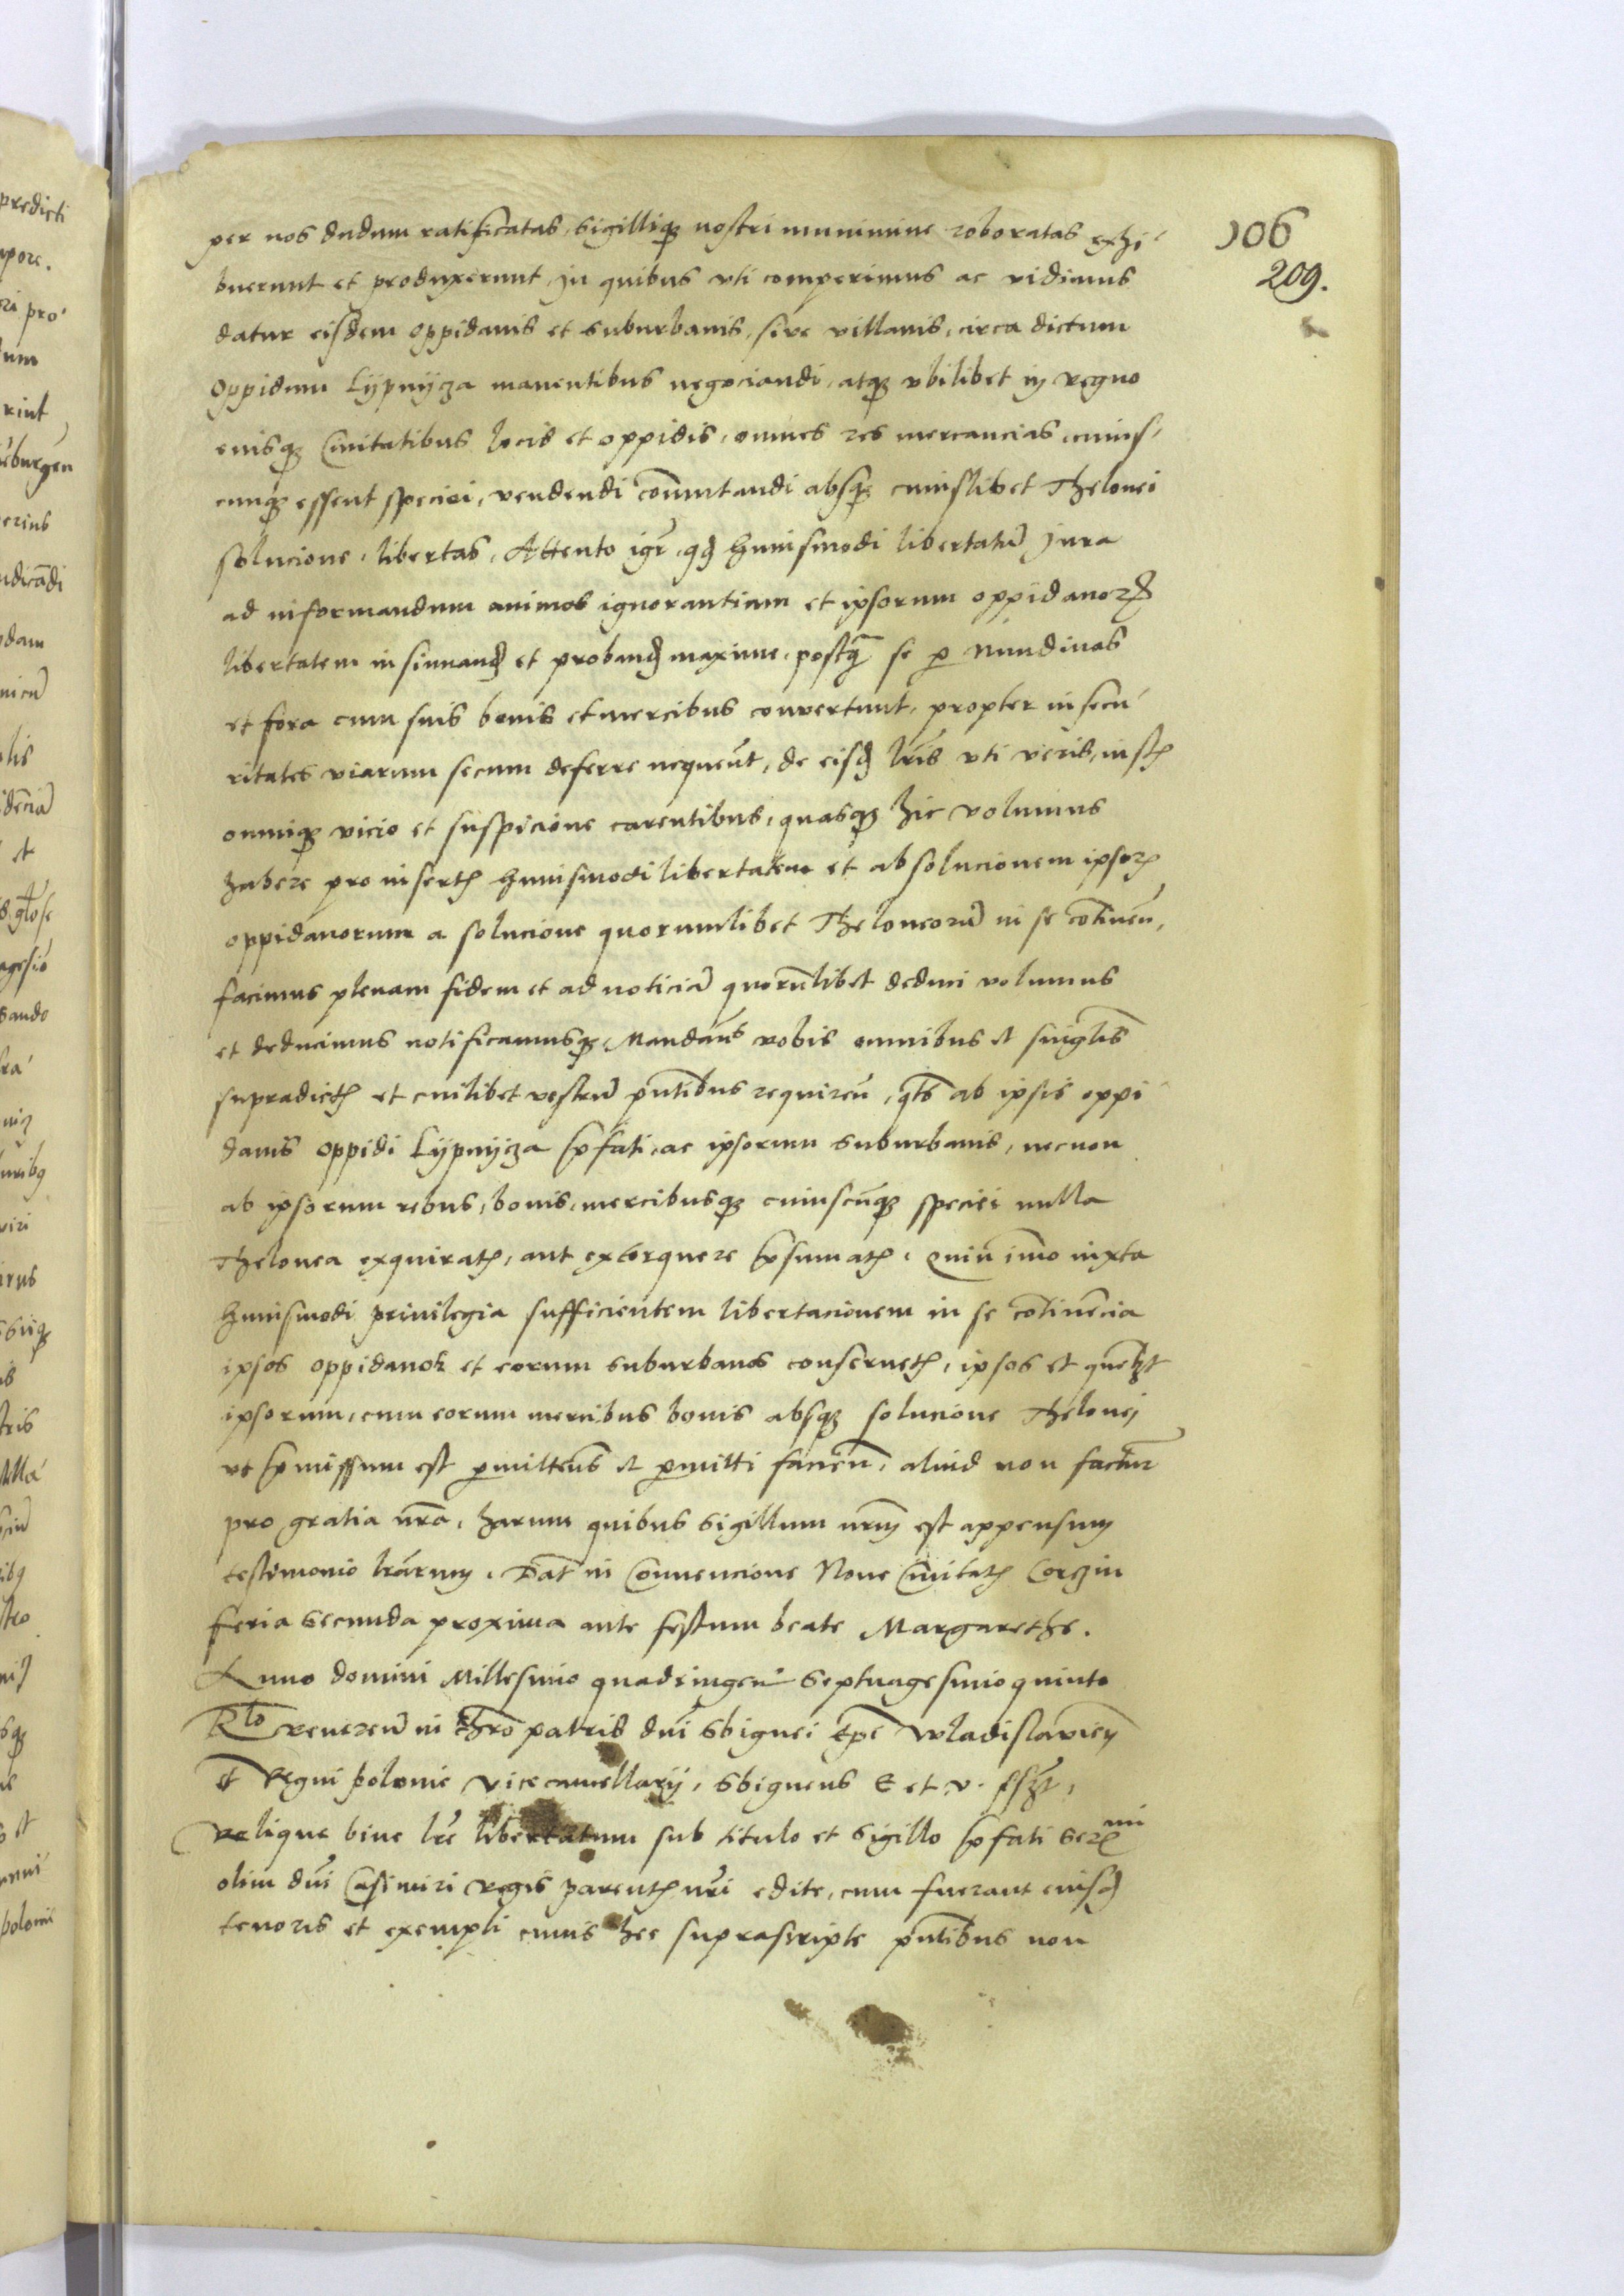 106
209.
per nos dudum ratificatas, sigilliq3 nostri munimine roboratas exhi-
buerunt et produxerunt, in quibus vti comperimus ac vidimus
datur eisdem oppidanis et suburbanis, siue villanis, circa dictum
oppidum Lijpnijcza manentibus negociandi, atq3 vbilibet in regno
eiusq3 Ciuitatibus locis et oppidis, omnes res mercancias, cuius-
cunq3 essent speciei, vendendi com̄utandi absq3 cuiuslibet Thelonei
solucione, libertas, Attento igr̄, qđ huiusmodi libertatū Jura
ad informandum animos ignorantiam et ipsorum oppidanoꝝ
libertatem insinuanđ et probanđ maxime, postq̄ se ꝑ Nundinas
et fora cum suis bonis et mercibus conuertunt, propter insecu-
ritates viarum secum deferre nequeūt, de eisđ lr̄is vti veris, iustꝭ
omniq3 vicio et suspicione carentibus, quasq3 hic volumus
habere pro insertꝭ huiusmodi libertatem et absolucionem ipsoꝝ
oppidanorum a solucione quorumlibet Theloneorū in se cōtineñ,
facimus plenam fidem et ad noticiā quorūlibet deduci volumus
et deducimus notificamusq3, Mandan̄s vobis omnibus et singlīs
supradictꝭ et cuilibet vestrū pn̄tibus requireñ, qts̄ ab ipsis oppi
danis oppidi Lijpnijcza p̄fati, ac ipsorum suburbanis, necnon
ab ipsorum rebus, bonis, mercibusq3 cuiuscūq3 speciei nulla
Thelonea exquiratꝭ, aut extorquere p̄sumatꝭ, Quin̄imo iuxta
huiusmodi priuilegia sufficientem libertacionem in se cōtinēcia
ipsos oppidanos et eorum suburbanos conseruetꝭ, ipsos et quēlꝫt
ipsorum, cum eorum mercibus bonis absq3 solucione Thelonej
vt p̄missum est ꝑmitten̄s et ꝑmitti facieñ, aliud non factur̄
pro gratia nr̄a, harum quibus sigillum nrm̄ est appensum
testimonio lr̄arum. Dat̄ in Conuencione Noue Ciuitatꝭ Corczin
feria secunda proxima ante festum beate Margarethe.
Anno domini Millesimo quadringeñ Septuagesimo quinto
Rlo Reuereñ in Chro̅ patris dn̄i Sbignei Epī Wladislavieñ
et Regni polonie vicecancellarij, Sbigneus E et v. sszt,
relique bine lr̄e libertatum sub titulo et sigillo p̄fati Serᵐⁱ
olim dn̄i Casimiri regis parentꝭ nr̄i edite, cum fuerant eiusđ
tenoris et exempli cuius hee suprascripte pn̄tibus non